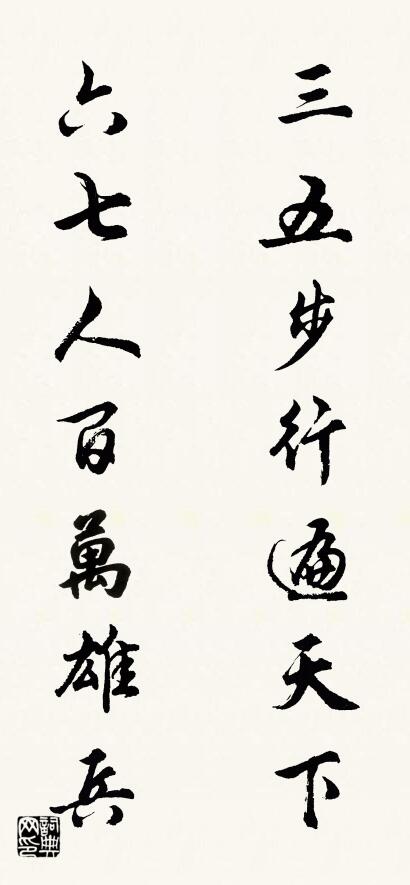 三五步行遍天下
六七人百萬雄兵
詞典网印